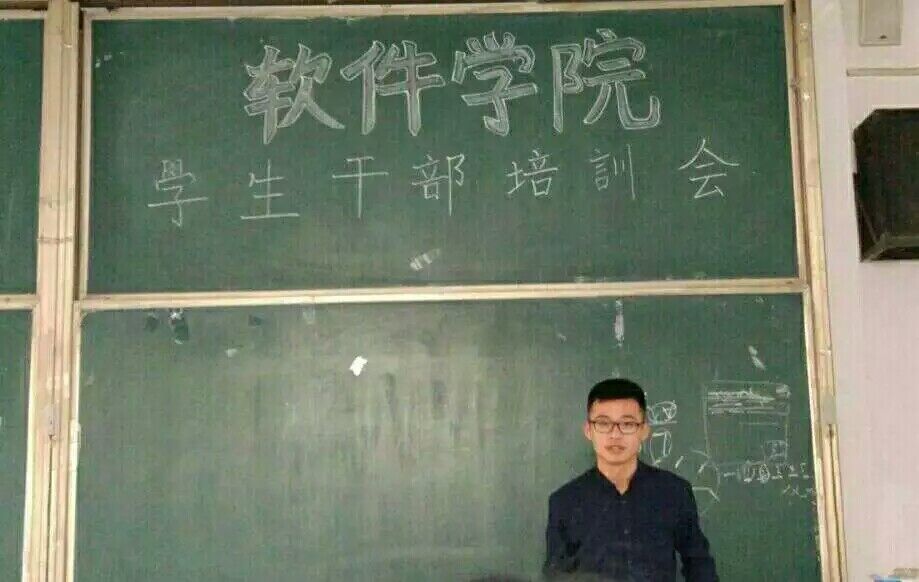 软件学院
學生干部培訓会